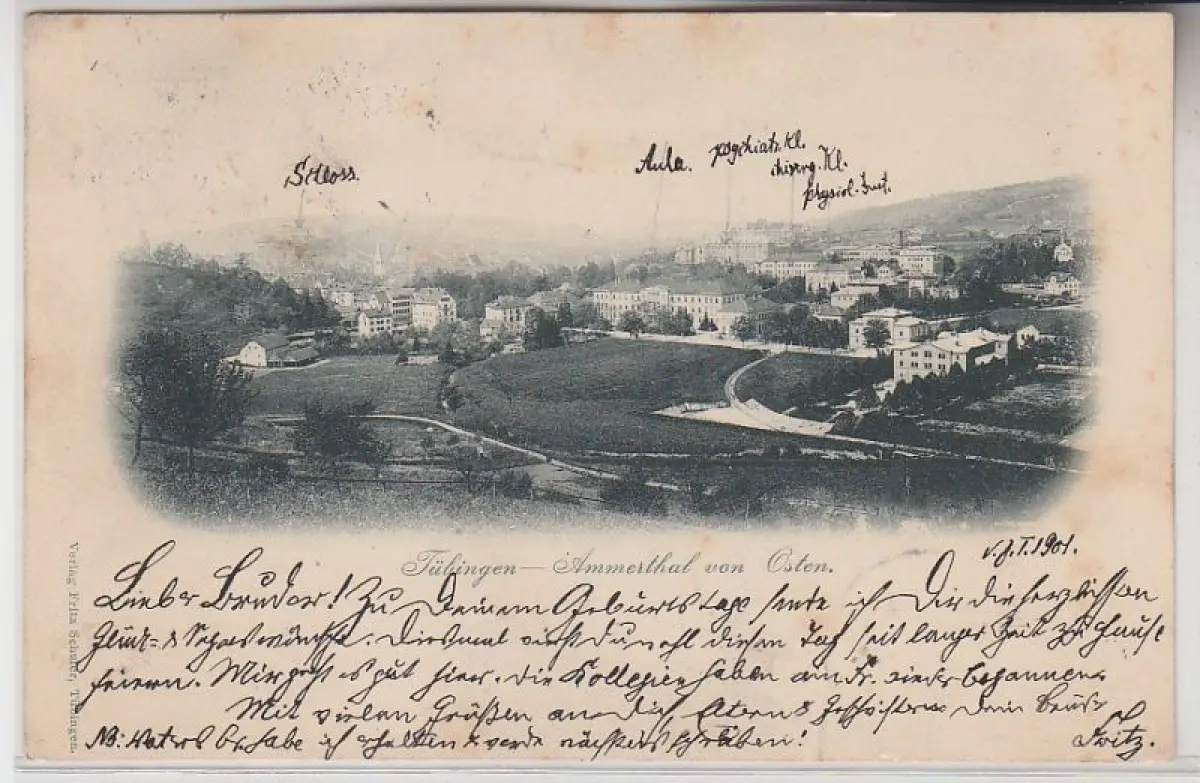 Schloss.
Aula.
psychiatr. Kl.
chirurg. Kl.
physiol. Inst.
Tübingen — Ammerthal von Osten.
1901.
Lieber Bruder! Zu Deinem Geburtstage sende ich Dir die herzlichsten
Glück- & Segenswünsche. Diesmal wirst Du wohl diesen Tag seit langer Zeit zu Hause
feiern. Mir geht es gut hier. Die Kollegien haben am Fr. wieder begonnen.
Mit vielen Grüßen an Dich, Eltern & Geschwister Dein Bruder
Fritz.
NB: Vaters habe ich erhalten & werde nächstens schreiben!
Verlag Fritz Schäfer, Tübingen.